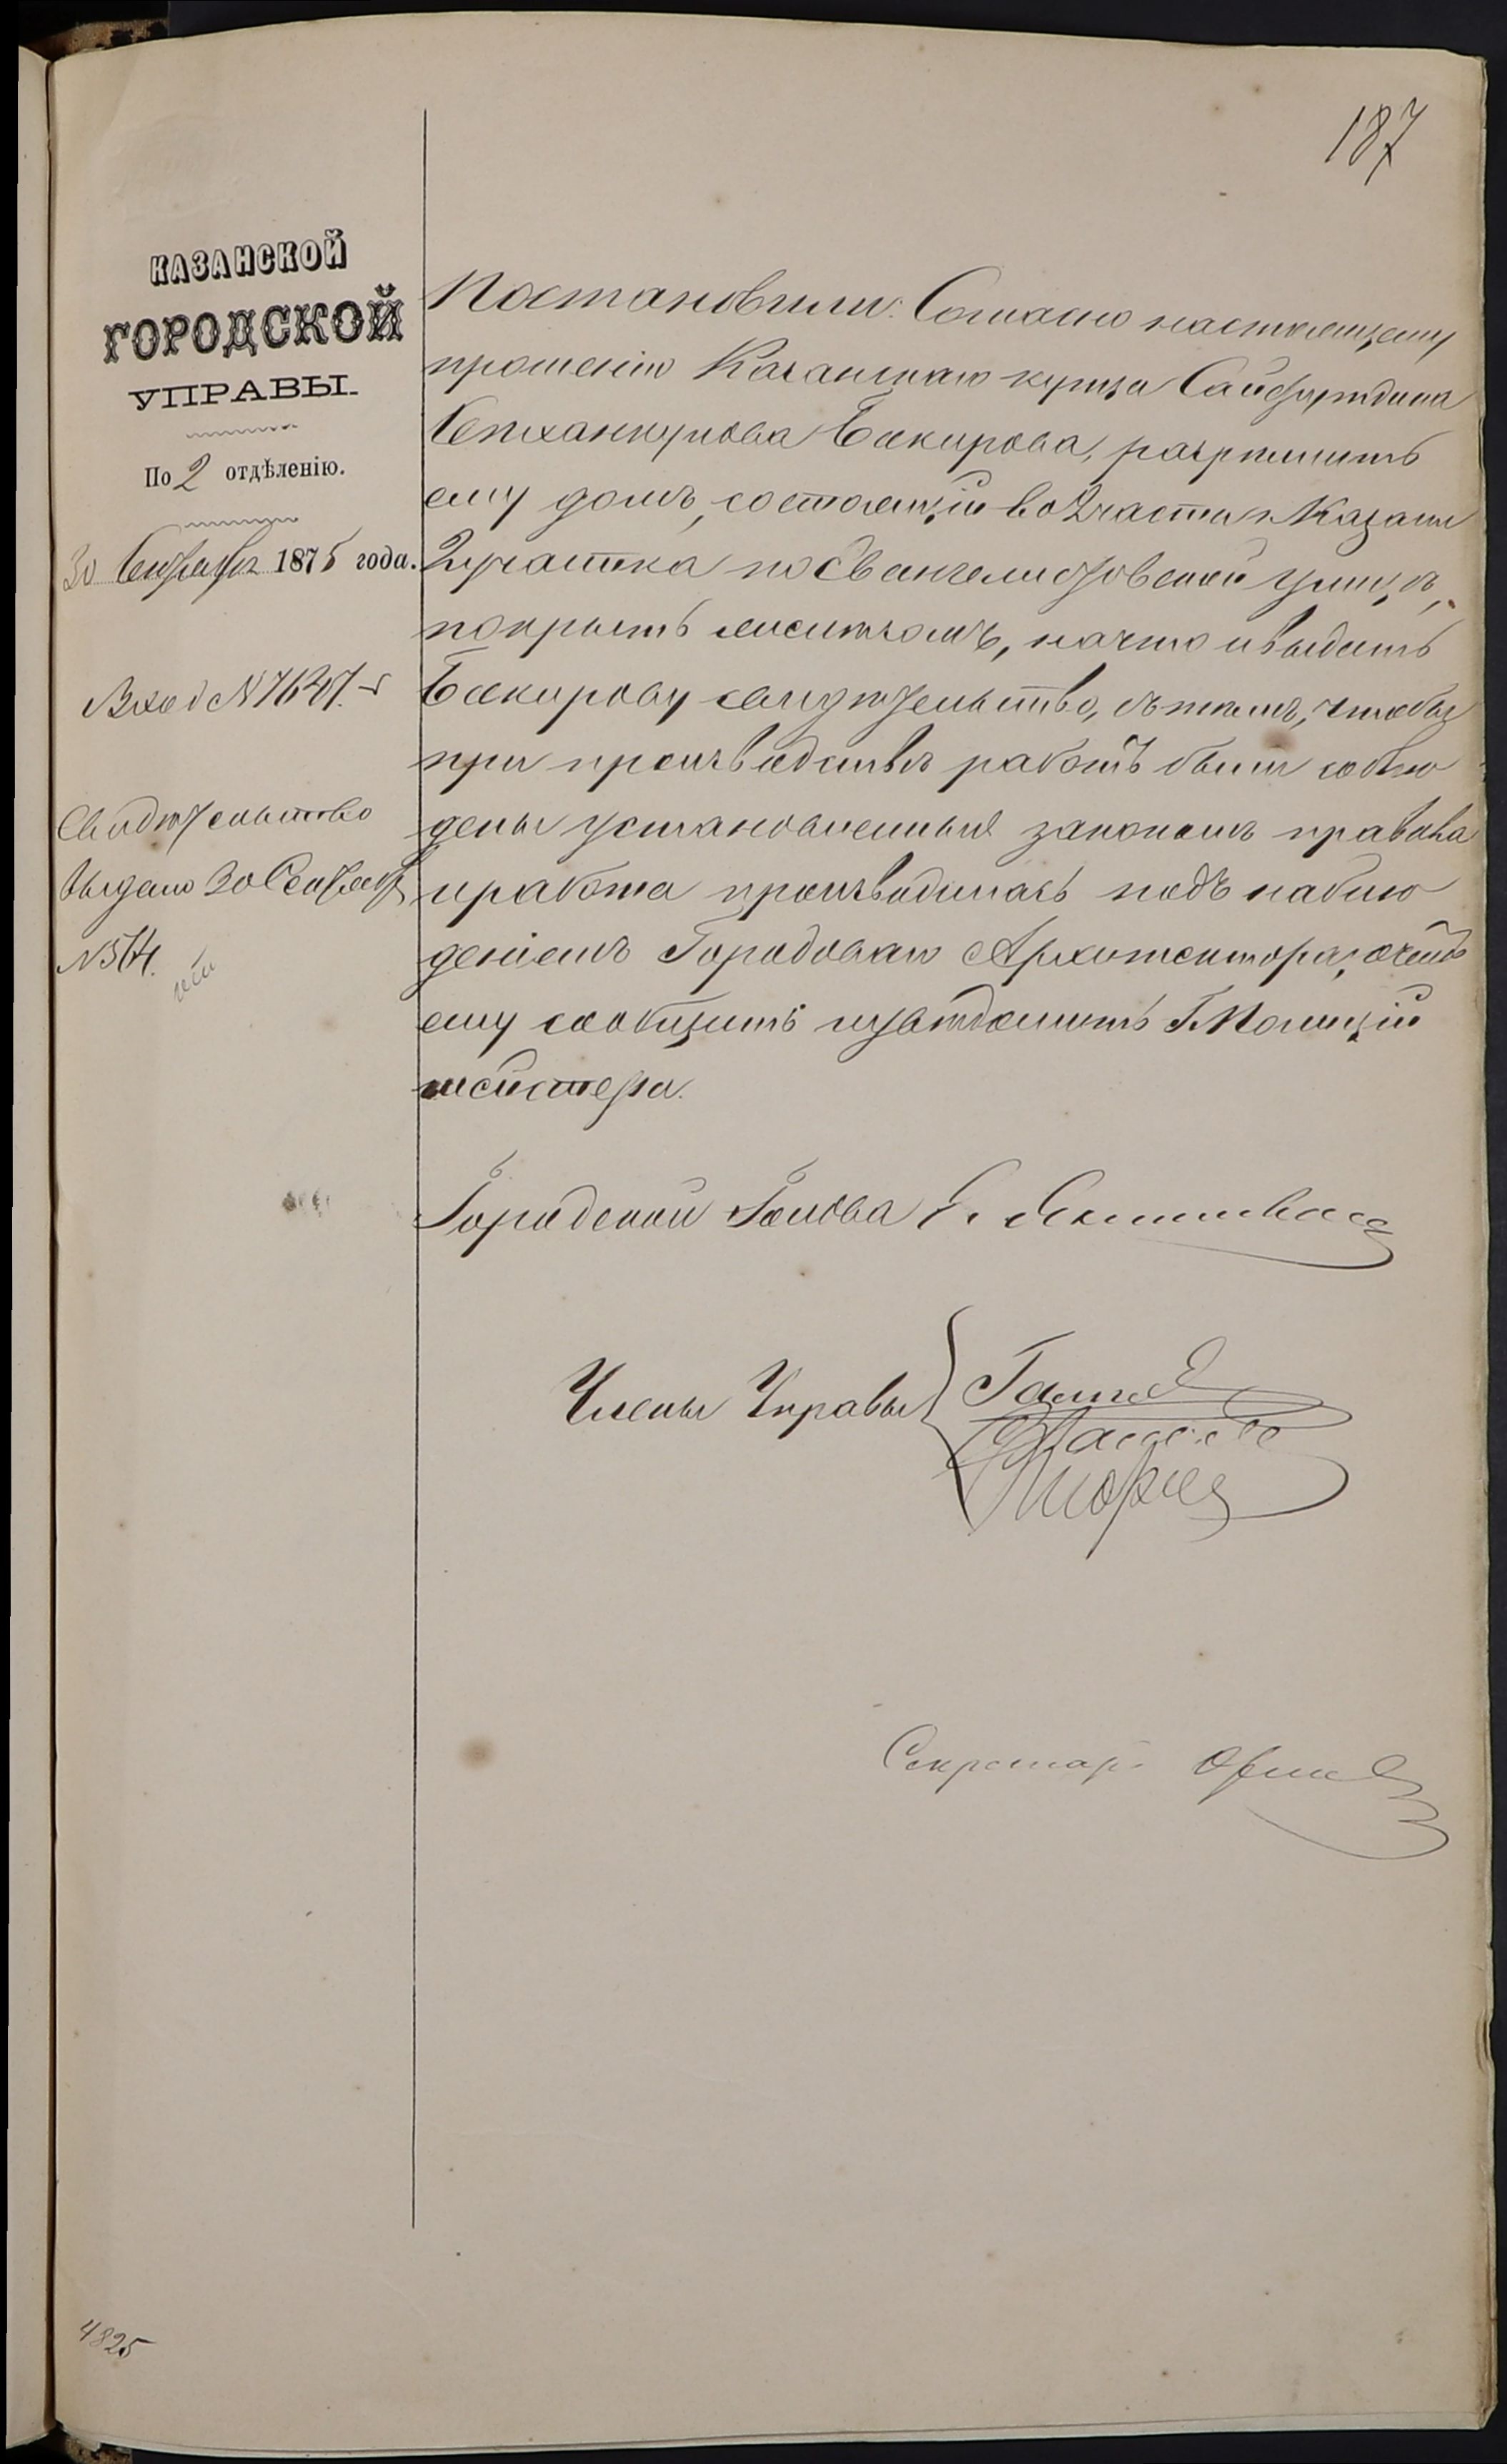 187
КАЗАНСКОЙ
ГОРОДСКОЙ
УПРАВЫ.
По 2 отдѣленію.
30 Сентября 1875 года.
Вход. № 7627.
Свидѣтельство
выдано 30 Сентября
№ 514.
Постановили: Согласно настоящему
прошенію Казанскаго купца Сайфутдина
Бакирова, разрѣшить
ему домъ, состоящій во 2 части г. Казани
2 участка по Евангелистовской улицѣ,
покрыть желѣзомъ, на что и выдать
Бакирову свидѣтельство, съ тѣмъ, чтобы
при производствѣ работъ были соблю
дены установленныя закономъ правила
и работа производилась подъ наблю
деніемъ Городоваго Архитектора, о чемъ
ему сообщить и увѣдомить Г. Полиціи
мейстера.
Городской Голова
Члены Управы
Секретарь
4825